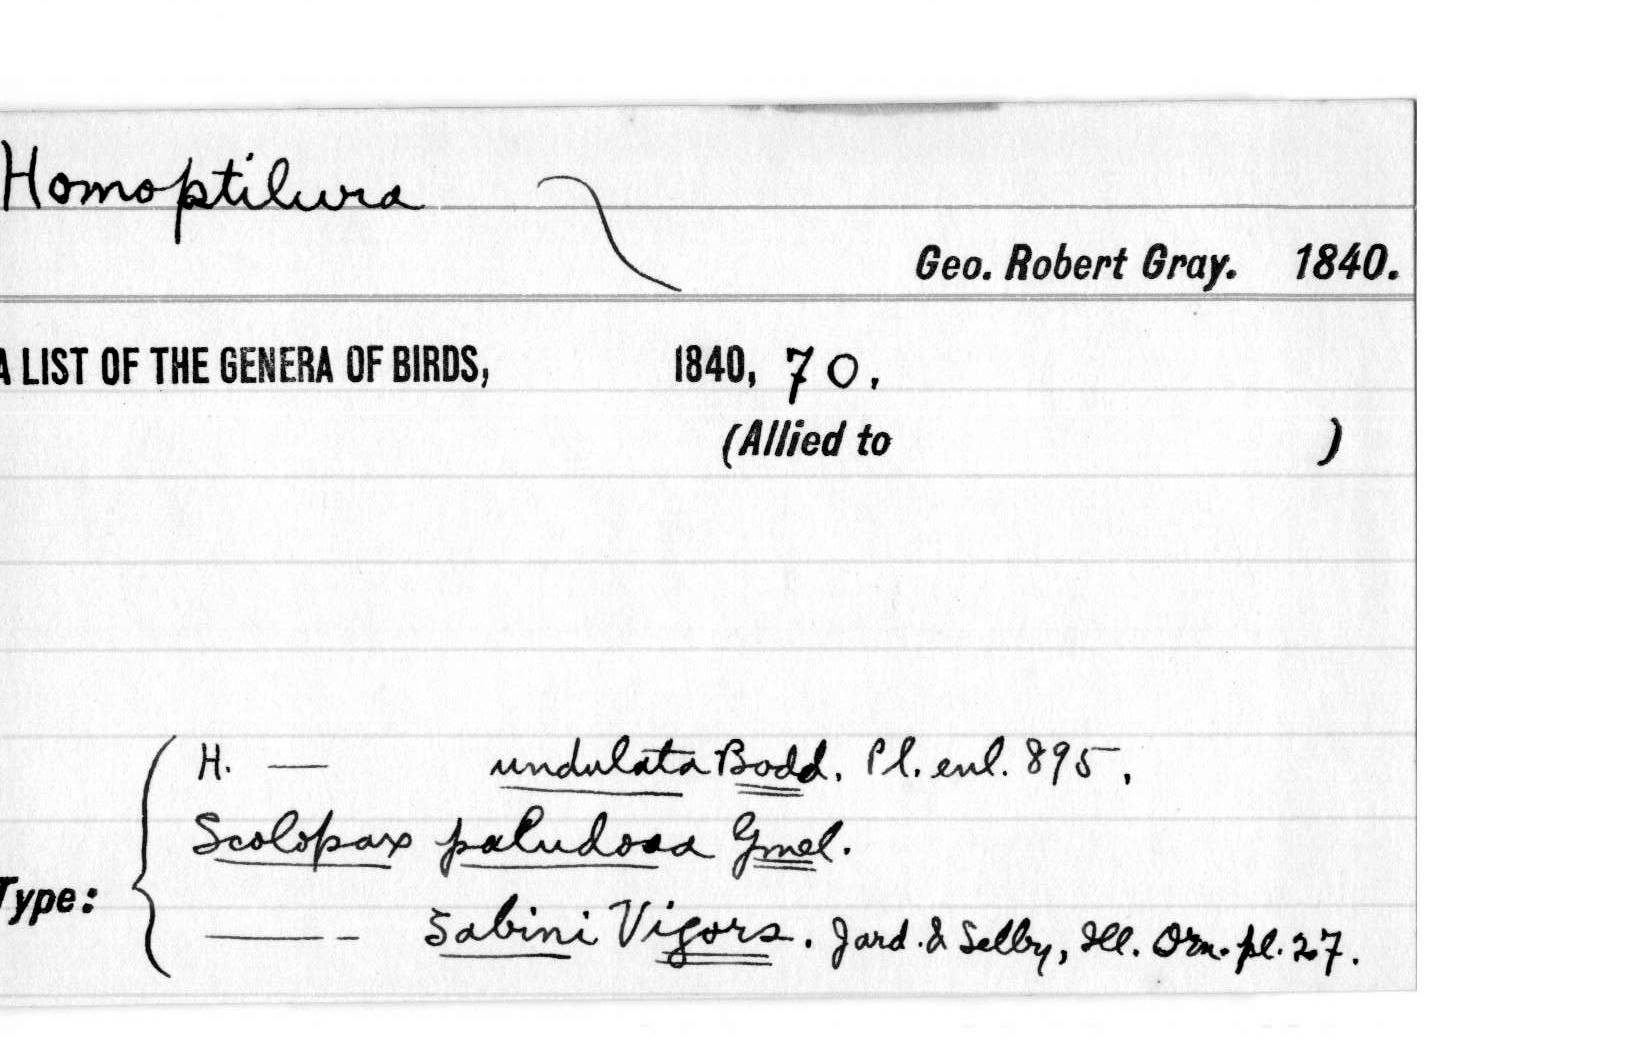 Homoptilura
Geo. Robert Gray. 1840.
A LIST OF THE GENERA OF BIRDS, 1840, 70.
(Allied to )
H. — undulata Bodd. Pl. enl. 895.
Scolopax paludosa Gmel.
Type:
——— - Sabini Vigors. Jard. & Selby, Ill. Orn. pl. 27.